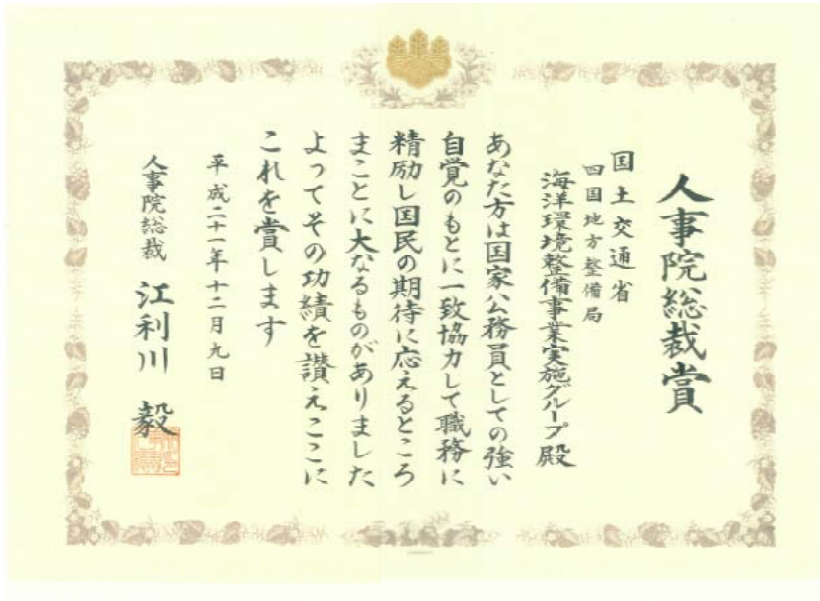 人事院総裁賞
国土交通省
四国地方整備局
海洋環境整備事業実施グループ殿
あなた方は国家公務員としての強い
自覚のもとに一致協力して職務に
精励し国民の期待に応えるところ
まことに大なるものがありました
よってその功績を讃えここに
これを賞します
平成二十一年十二月九日
人事院総裁 江利川毅